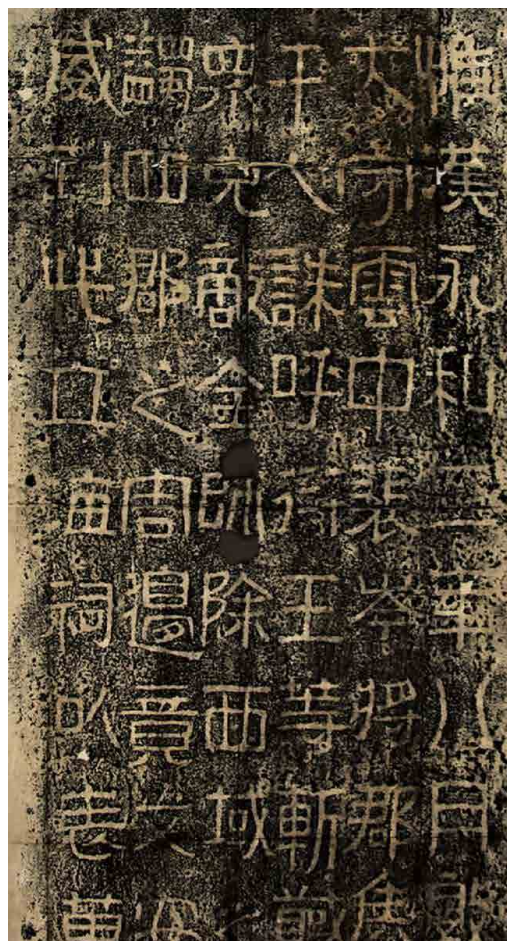 惟漢永和二年八月敦
太守雲中裴岑將郡兵
千人誅呼衍王等斬馘
衆克敵全師除西域之
蠲四郡之害邊竟艾安
威到此立海祠以表萬